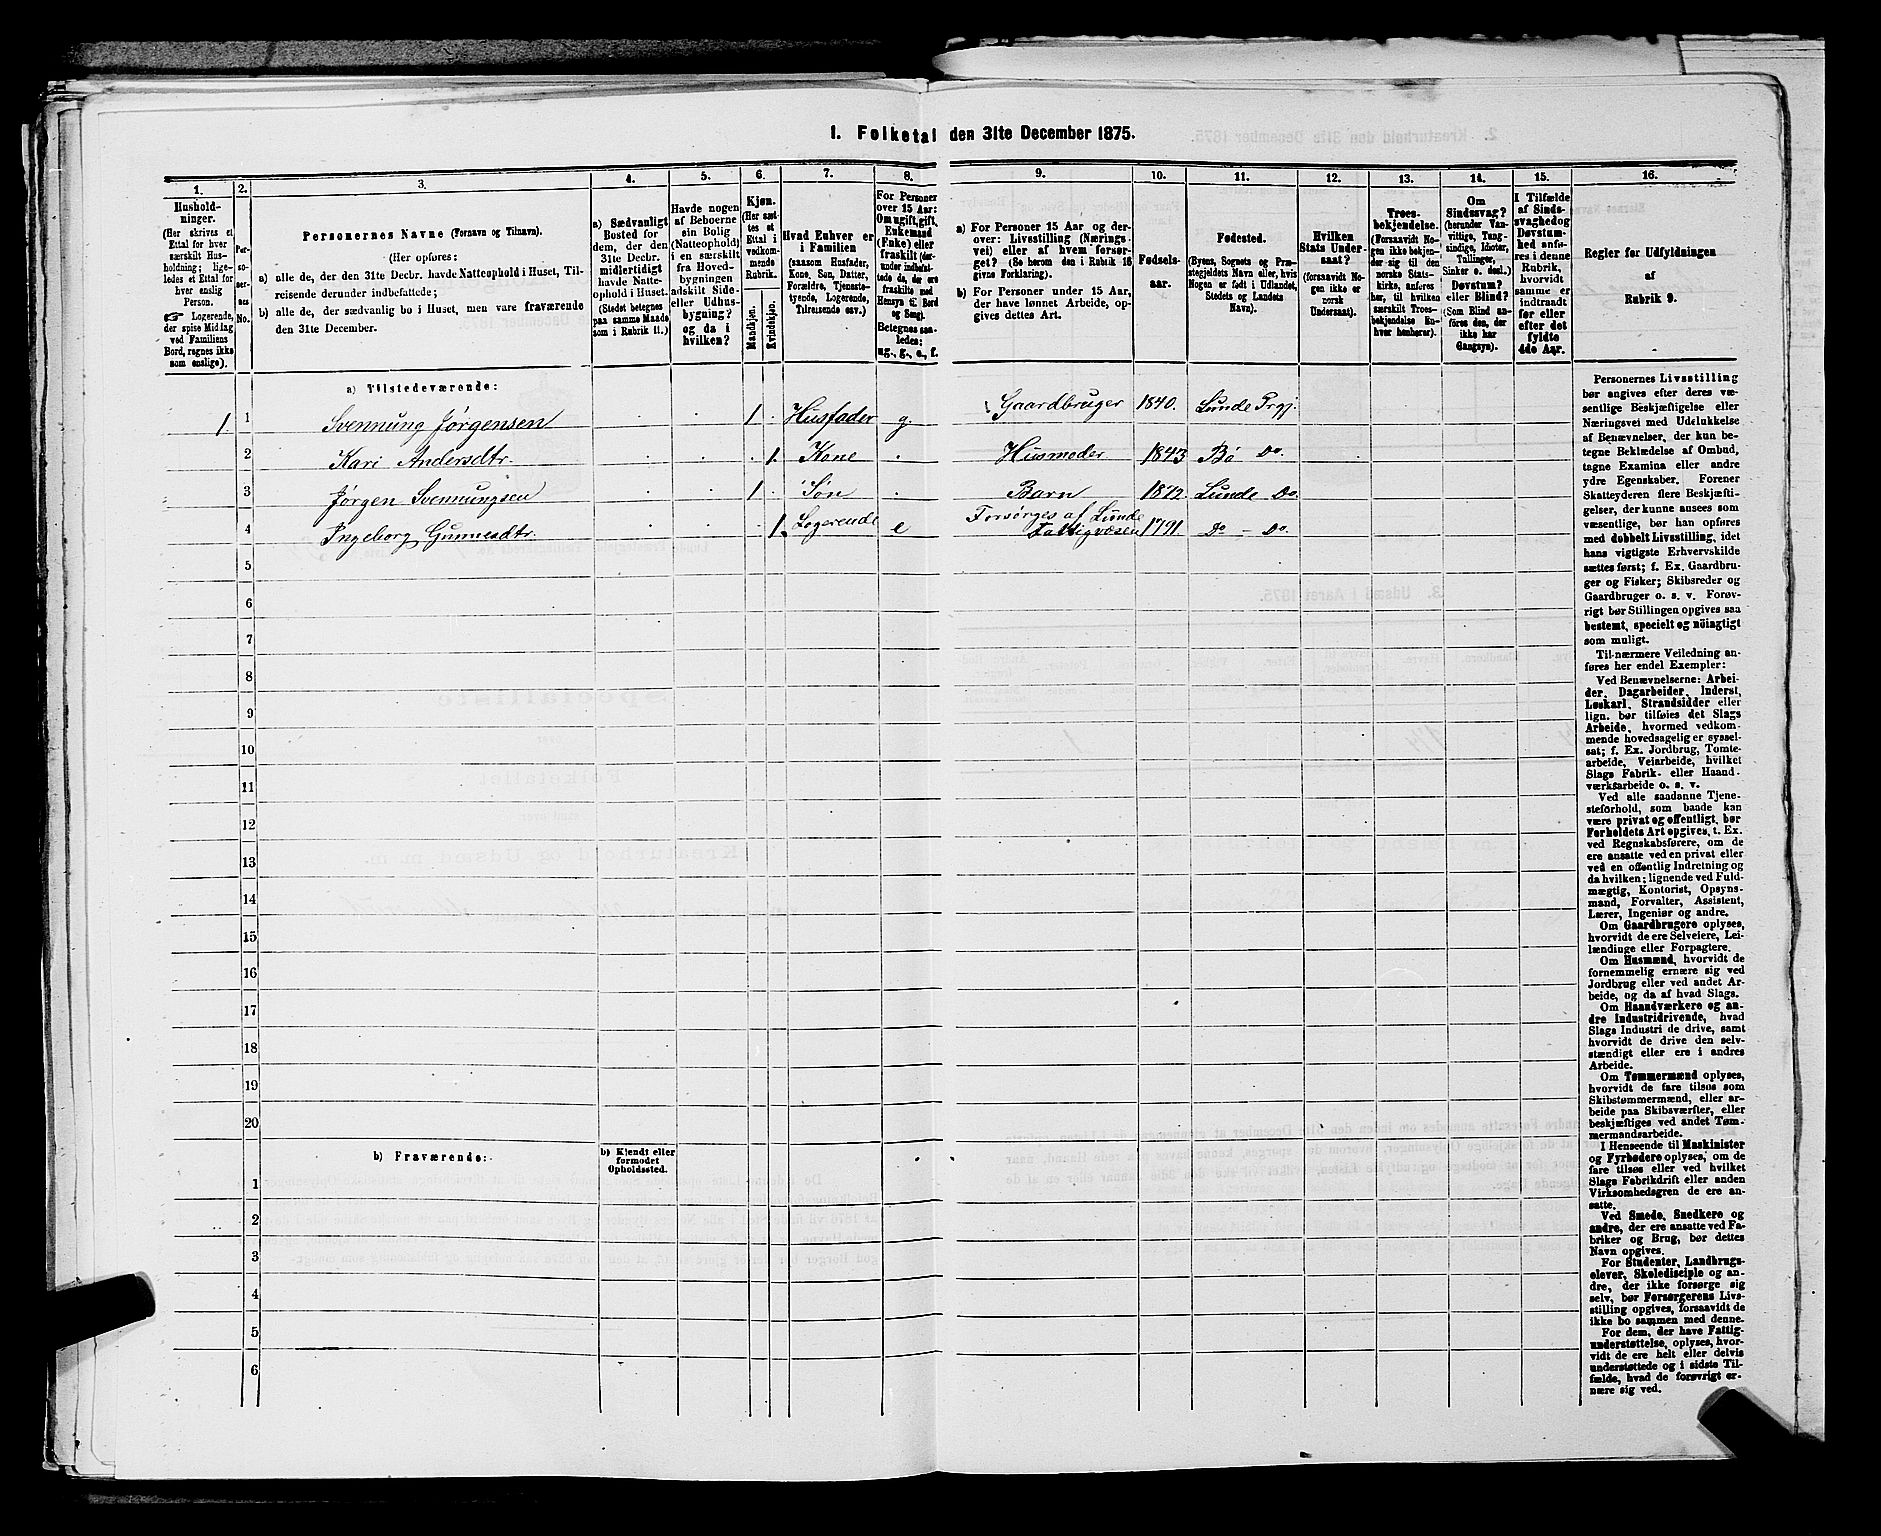 1. Folketal den 31te December 1875.
1.
Hushold-
ninger.
(Her skrives et
Ettal for hver
særskilt Hus-
holdning; lige-
ledes et Ettal for
hver enslig
Person.
☛ Logerende,
der spise Middag
ved Familiens
Bord, regnes ikke
som enslige).
2.
Per-
so-
ner-
nes
No.
3.
Personernes Navne (Fornavn og Tilnavn).
(Her opføres:
a) alle de, der den 31te Decbr. havde Natteophold i Huset, Til-
reisende derunder indbefattede;
b) alle de, der sædvanlig bo i Huset, men vare fraværende
den 31te December.
4.
a) Sædvanligt
Bosted for
dem, der den
31te Decbr.
midlertidigt
havde Natte-
ophold i Huset.
(Stedet betegnes
paa samme Maade
som i Rubrik 11.)
5.
Havde nogen
af Beboerne
sin Bolig
(Natteophold)
i en særskilt
fra Hoved-
bygningen
adskilt Side-
eller Udhus-
bygning?
og da i
hvilken?
6.
Kjøn.
(Her sæt-
tes et
Ettal i
vedkom-
mende
Rubrik.
Mandkjøn.
Kvindekjøn.
7.
Hvad Enhver er
i Familien
(saasom Husfader,
Kone, Søn, Datter,
Forældre, Tjeneste-
tyende, Logerende,
Tilreisende osv.)
8.
For Personer
over 15 Aar:
Om ugift, gift,
Enkemand
(Enke) eller
fraskilt (der-
under indbefat-
tede da, der ere
fraskilte med
Hensyn til Bord
og Seng).
Betegnes saa-
ledes:
ug., g., e., f.
9.
a) For Personer 15 Aar og der-
over: Livsstilling (Nærings-
vei) eller af hvem forsør-
get? (Se herom den i Rubrik 16
givne Forklaring).
b) For Personer under 15 Aar,
der have lønnet Arbeide, op-
gives dettes Art.
10.
Fødsels-
aar.
11.
Fødested.
(Byens, Sognets og Præ-
stegjeldets Navn eller, hvis
Nogen er født i Udlandet,
Stedets og Landets
Navn).
12.
Hvilken
Stats Under-
saat?
(forsaavidt No-
gen ikke er
norsk
Undersaat).
13.
Troes-
bekjendelse.
(Forsaavidt No-
gen ikke bekjen-
der sig til den
norske Stats-
kirke, anføres
her, til hvilken
særskilt Troes-
bekjendelse En-
hver henhører).
14.
Om
Sindssvag?
(herunder Van-
vittige, Tung-
sindige, Idioter,
Tullinger,
Sinker o. desl.).
Døvstum?
eller Blind?
(Som Blind an-
føres den, der
ikke har
Gangsyn).
15.
I Tilfælde
af Sinds-
svaghed og
Døvstum-
hed anfø-
res i denne
Rubrik,
hvorvidt
samme er
indtraadt
før eller
efter det
fyldte
4de Aar.
16.
Regler for Udfyldningen
af
Rubrik 9.
a) Tilstedeværende:
1. 1 Svennung Jørgensen 1 Husfader g. Gaardbruger 1840. Lunde Prgj.
2 Kari Andersdtr. 1. Kone Husmoder. 1843 Bø Do.
3 Jørgen Svennungsen 1 Søn Barn 1872. Lunde Do.
4 Ingeborg Gunnesdtr. 1. Logerende e Forsørges af Lunde
Fattigvæsen 1791. Do — Do.
5
6
7
8
9
10
11
12
13
14
15
16
17
18
19
20
b) Fraværende: b) Kjendt eller
formodet
Opholdssted.
1
2
3
4
5
6
Personernes Livsstilling
bør angives efter deres væ-
sentlige Beskjæftigelse eller
Næringsvei med Udelukkelse
af Benævnelser, der kun be-
tegne Beklædelse af Ombud,
tagne Examina eller andre
ydre Egenskaber. Forener
Skatteyderen flere Beskjæfti-
gelser, der kunne ansees som
væsentlige, bør han opføres
med dobbelt Livsstilling, idet
hans vigtigste Erhvervskilde
sættes først; f. Ex. Gaardbru-
ger og Fisker; Skibsreder og
Gaardbruger o. s. v. Forøv-
rigt bør Stillingen opgives saa
bestemt, specielt og nöiagtigt
som muligt.
Til nærmere Veiledning an-
føres her endel Exempler:
Ved Benævnelserne: Arbei-
der, Dagarbeider, Inderst,
Løskarl, Strandsidder eller
lign. bør tilføies det Slags
Arbeide, hvormed vedkom-
mende hovedsagelig er syssel-
sat; f. Ex. Jordbrug, Tomte-
arbeide, Veiarbeide, hvilket
Slags Fabrik- eller Haand-
værksarbeide o. s. v.
Ved alle saadanne Tjene-
steforhold, som baade kan
være privat og offentligt, bør
Forholdets Art opgives, t. Ex.
ved Regnskabsførere, om de
ere ansatte ved en privat eller
ved en offentlig Indretning og
da hvilken; lignende ved Fuld-
mægtig, Kontorist, Opsyns-
mand, Forvalter, Assistent,
Lærer, Ingeniør og andre.
Om Gaardbrugere oplyses,
hvorvidt de ere Selveiere, Lei-
lændinge eller Forpagtere.
Om Husmænd, hvorvidt de
fornemmelig ernære sig ved
Jordbrug eller ved andet Ar-
beide, og da af hvad Slags.
Om Haandværkere og an-
dre Industridrivende, hvad
Slags Industri de drive, samt
hvorvidt de drive den selv-
stændigt eller ere i andres
Arbeide.
Om Tømmermænd oplyses,
hvorvidt de fare tilsøs som
Skibstømmermænd, eller ar-
beide paa Skibsværfter, eller
beskjæftiges ved andet Tøm-
mermandsarbeide.
I Henseende til Maskinister
og Fyrbødere oplyses, om de
fare tilsøs eller ved hvilket
Slags Fabrikdrift eller anden
Virksomhedsgren de ere an-
satte.
Ved Smede, Snedkere og
andre, der ere ansatte ved Fa-
briker og Brug, bør dettes
Navn opgives.
For Studenter, Landbrugs-
elever, Skoledisciple og an-
dre, der ikke forsørge sig
selv, bør Forsørgerens Livs-
stilling opgives, forsaavidt de
ikke bo sammen med denne.
For dem, der have Fattig-
understøttelse, oplyses, hvor-
vidt de ere helt eller delvis
understøttede og i sidste Til-
fælde, hvad de forøvrigt er-
nære sig ved.